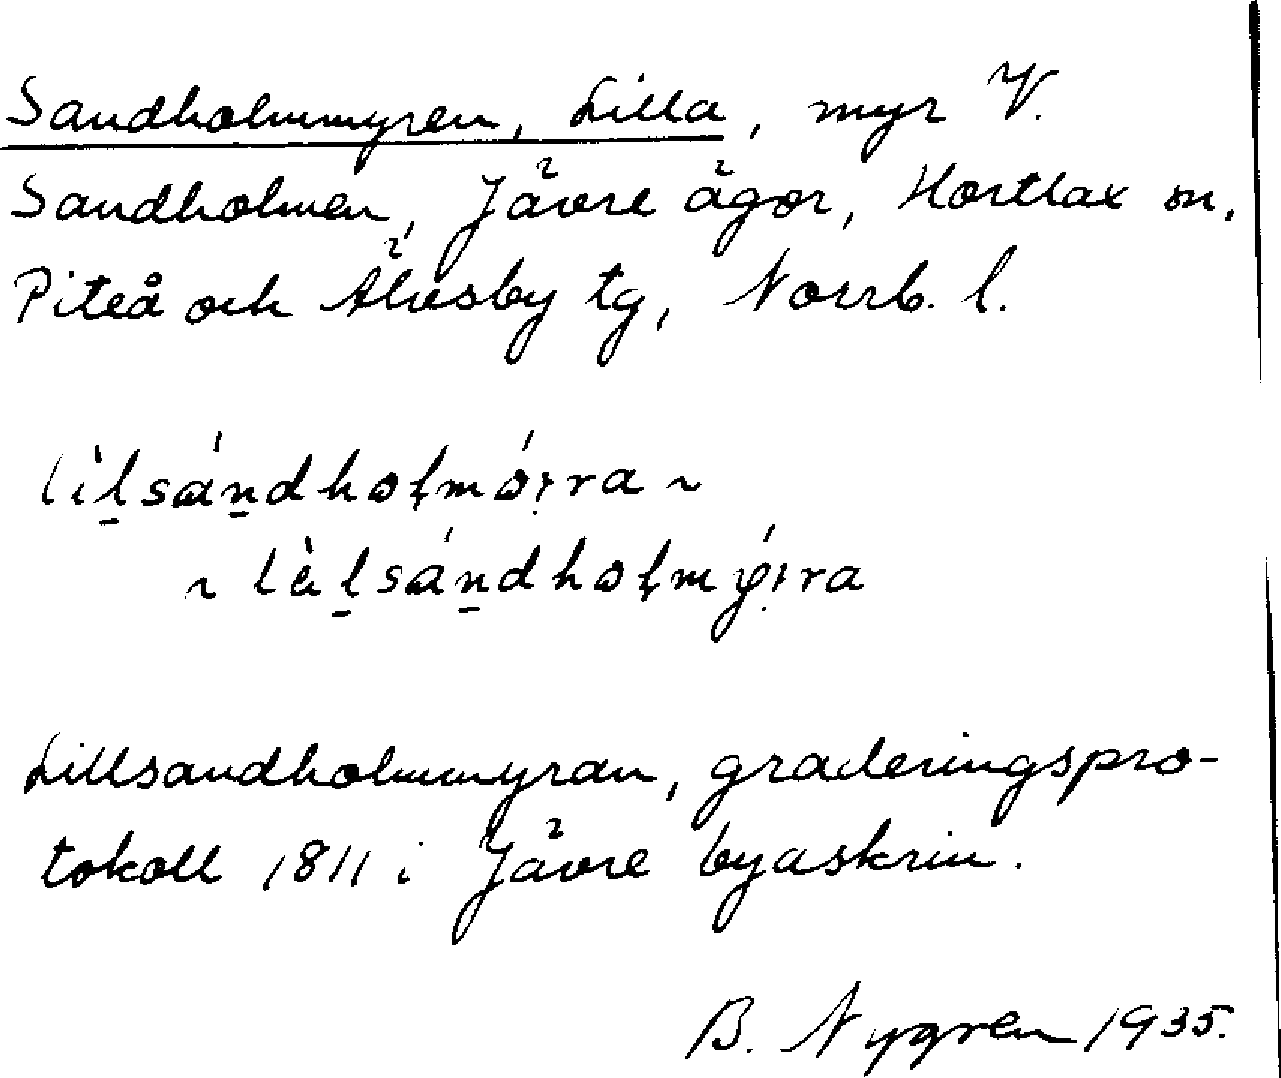 Sandholmmyren, Lilla, myr V.
Sandholmen, Jävre ägor, Hortlax sn,
Piteå och Älvsby tg, Norrb. l.
lìl̠sán̠dholmó:ra ~
~ lèl̠sán̠dholmǿ:ra
Lillsandholmmyran, graderingspro-
tokoll 1811 i Jävre byaskrin.
B. Nygren 1935.